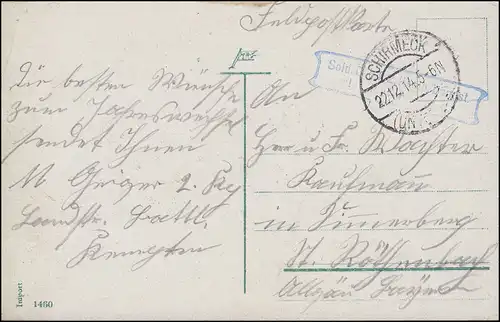 Feldpostkarte
SCHIRMECK
22.12.14.5-6N
Sold
Die besten Wünsche
zum Jahreswechsel
sendet Ihnen
M Geiger 2. Kp
Landst. Batl.
Kempten
An
Herrn u. Fr.
Kaufmann
in Simmerberg
St. Röthenbach
Allgäu Bayern
Import
1460